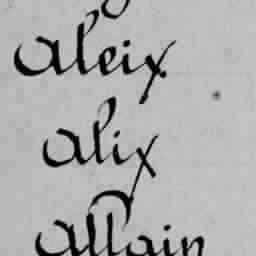 Aleix
Alix
Allain